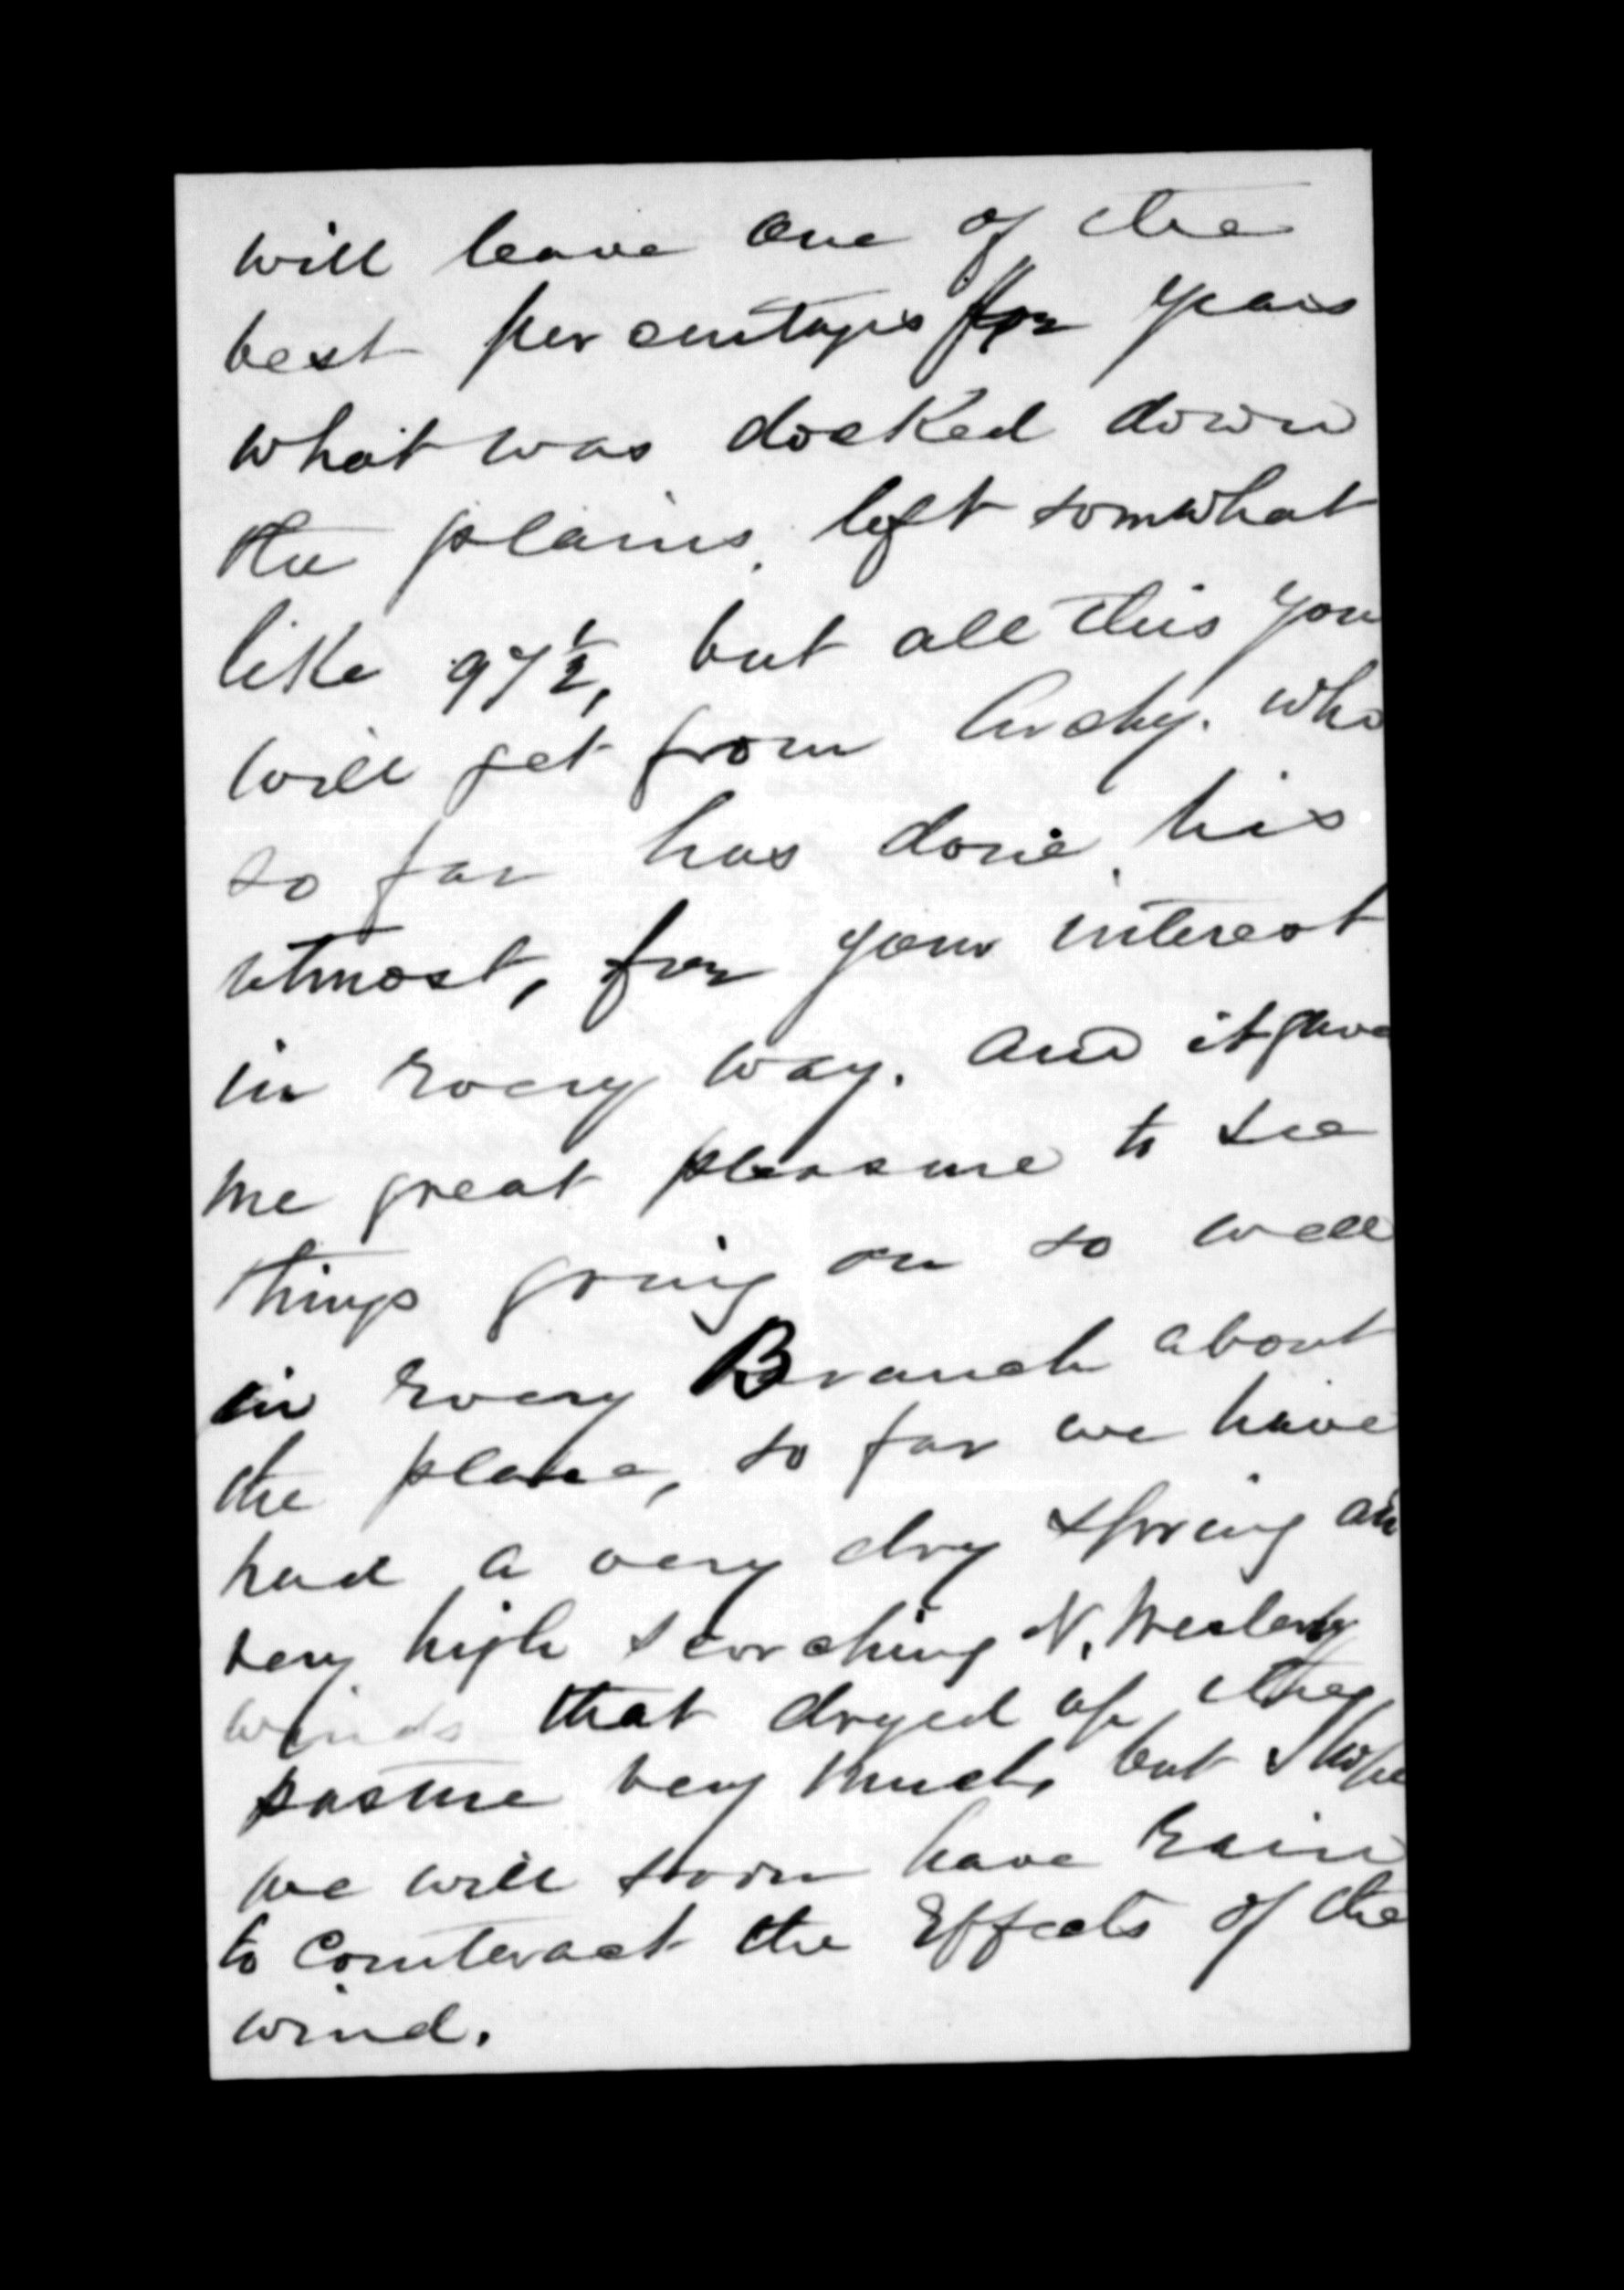 will leave one of the
best percentages for years
what was docked down
the plains, left somwhat
like 97½, but all this you
will get from Archy. who
so far has done, his
utmost, for your interest
in every way. and it gave
me great pleasure to see
things going on so well
in every Branch about
the place, so far we have
had a very dry spring an
very high scorching N. Westerly
winds that dryed up the
pasture very much, but I hope
we will soon have rain
to counteract the Effects of the
wind.